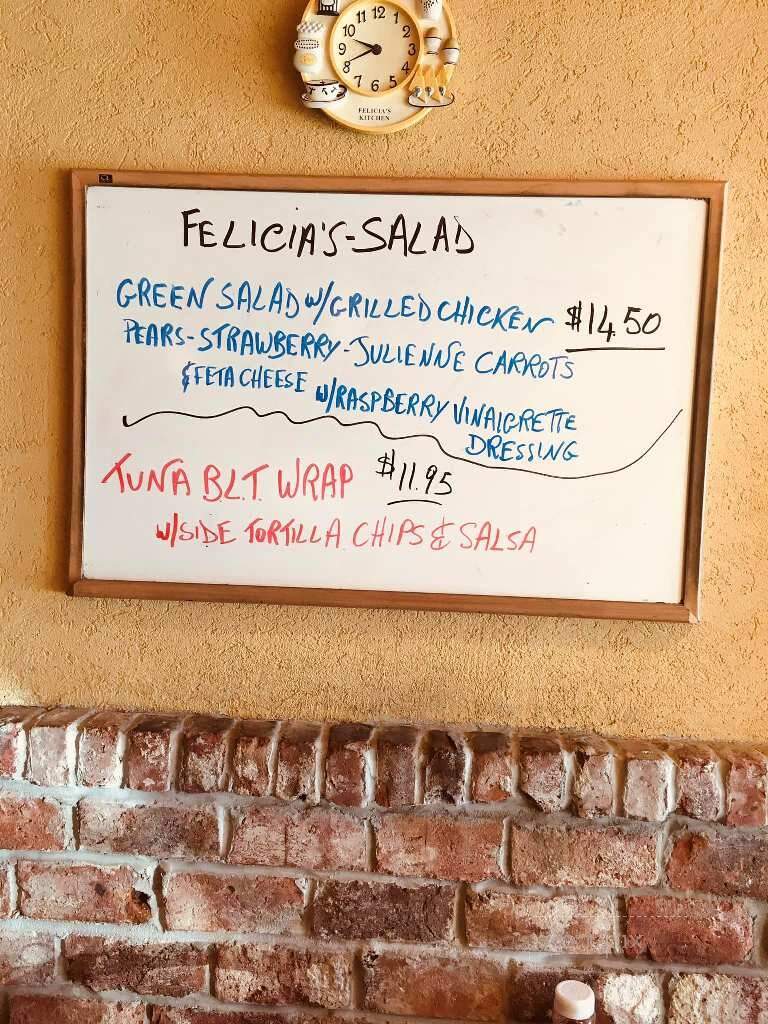 12
1
2
3
4
5
6
7
8
9
10
11
FELICIA'S
KITCHEN
FELICIA'S-SALAD
GREEN SALAD W/GRILLED CHICKEN $14.50
PEARS-STRAWBERRY-JULIENNE CARROTS
& FETA CHEESE W/RASPBERRY VINAIGRETTE
DRESSING
TUNA B.L.T. WRAP $11.95
W/SIDE TORTILLA CHIPS & SALSA